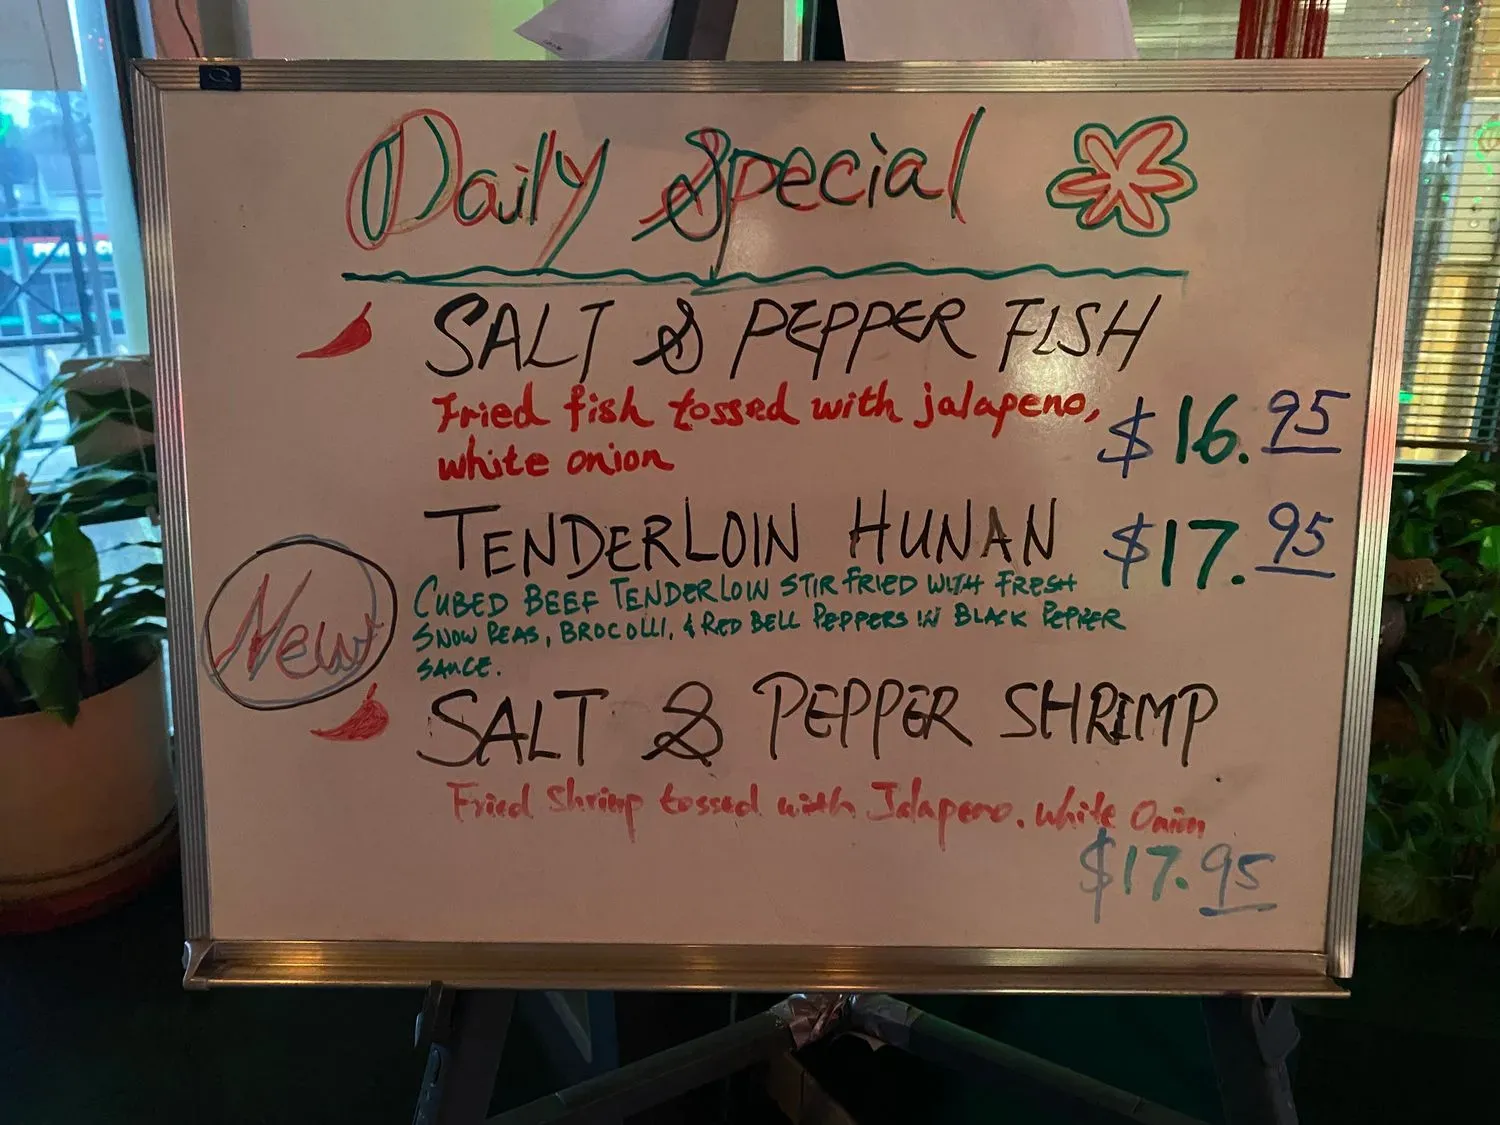 Daily Special
SALT & PEPPER FISH
Fried fish tossed with jalapeno,
white onion
$16.95
TENDERLOIN HUNAN
$17.95
New
CUBED BEEF TENDERLOIN STIR FRIED WITH FRESH
SNOW PEAS, BROCOLLI, & RED BELL PEPPERS IN BLACK PEPPER
SAUCE.
SALT & PEPPER SHRIMP
Fried Shrimp tossed with Jalapeno. white Onion
$17.95